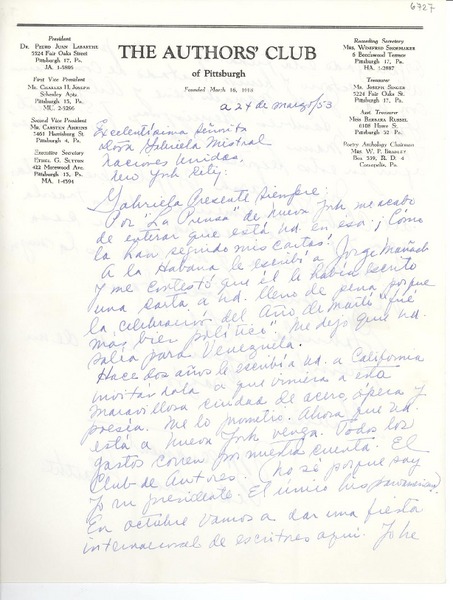 6727
President
Dr. Pedro Juan Labarthe
5924 Fair Oaks Street
Pittsburgh 17, Pa.
JA. 1-5805
First Vice President
Mr. Charles H. Joseph
Schenley Apts.
Pittsburgh 13, Pa.
MU. 2-5266
Second Vice President
Mr. Carsten Ahrens
Pittsburgh 5, Pa.
Executive Secretary
Ethel G. Sutton
Pittsburgh 13, Pa.
MA. 1-4594
THE AUTHORS' CLUB
of Pittsburgh
Founded March 16, 1916
Recording Secretary
Mrs. Winifred Shoemaker
6 Beechwood Terrace
Pittsburgh
HA. 1-3887
Treasurer
Mr. Joseph Singer
5224 Fair Oaks St.
Pittsburgh 17, Pa.
Asst. Treasurer
Miss Barbara Russel
Pittsburgh 32, Pa.
Poetry Anthology Chairman
Mrs. W. P. Bradley
Box 539, R. D. 4
Coraopolis, Pa.
a 24 de marzo/53
Excelentísima Señorita
Doña Gabriela Mistral
Naciones Unidas,
New York City:
Gabriela Presente Siempre:
Por "La Prensa" de Nueva York me acabo
de enterar que está Ud. en esa. ¡Cómo
la han seguido mis cartas!
A la Habana le escribí a Jorge Mañach
y me contestó que él le había escrito
una carta a Ud. lleno de pena porque
la "celebración del Año de Martí" fué
muy bien político". Me dijo que Ud.
salía para Venezuela.
Hace dos años le escribí a Ud. a California
invitándola a que viniera a esta
maravillosa ciudad de acero, ópera y
poesía. Me lo prometió. Ahora que Ud.
está a Nueva York venga. Todos los
gastos corren por nuestra cuenta. El
Club de Autores. (no sé porque soy
yo su presidente. El único hispanoamericano).
En octubre vamos a dar una fiesta
internacional de escritores aquí. Yo he